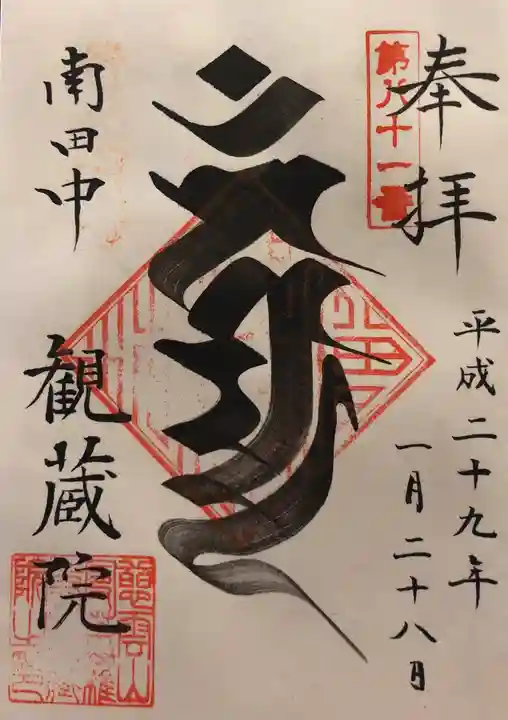 奉拝
第八十一番
平成二十九年
一月二十八月
南田中
観蔵院
慈雲山